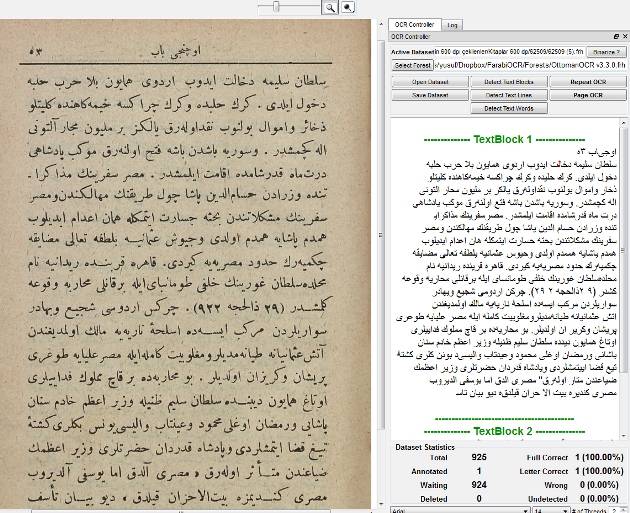 اوچنجی باب ٥٣
سلطان سلیمه دخالت ایدوب اردوی همایون بلا حرب حلبه
دخول ایلدی . كرك حلبده وكرك چراكسه خیمه‌كاهنده كلیتلو
ذخائر واموال بولنوب نقداوله‌رق یالكز بر ملیون التونی
اله كچمشدر . وسوریه باشدن باشه فتح اولنه‌رق موكب پادشاهی
درت ماه قدرشامده اقامت ایلمشدر . مصر سفرینك مذاكرا .
تنده وزرادن حسام‌الدین پاشا چول طریقنك مهالكندن‌ومصر
سفرینك مشكلاتندن بحثه جسارت ایتمكله همان اعدام ایدیلوب
همدم پاشایه همدم اولدی وجیوش عثمانیه بلطفه تعالی مضایقه
چكمیه‌رك حدود مصریه‌یه كیردی. قاهره قربنده ریدانیه نام
محلده‌سلطان غورینك خلفی طومانبای‌ایله برقانلی محاربه وقوعه
كلشدر (٢٩ ذالحجه ٩٢٢) . چركس اردوسی شجیع وبهادر
سواریلردن مركب ایسه‌ده اسلحهٔ ناریه‌یه مالك اولمدیغندن
آتش عثمانیانه طیانه‌مدیلرومغلوبیت كامله‌ایله مصر علیایه طوغری
پریشان وكریزان اولدیلر . بو محاربه‌ده بر قاچ مملوك فداییلری
اوتاغ همایون دیننده سلطان سلیم ظنیله وزیر اعظم خادم سنان
پاشانی ورمضان اوغلی‌محمود وعینتاب والیسی‌یونس بكلری‌كشتهٔ
تیغ قضا ایتمشلردی‌وپادشاه قدردان حضرتلری وزیر اعظمك
ضیاعندن متأثر اوله‌رق « مصری آلدق اما یوسفی آلدیروب
مصری كندیمزه بیت‌الاحزان قیلدق » دیو بیان تأسف
OCR Controller Log
OCR Controller
Active Dataset: 600 dpi geklenlerKitaplar 600 dpi/62509/62509 (5).frh Binarize ?
Select Forest s/yusuf/Dropbox/FarabiOCR/Forests/OttomanOCR v3.3.0.frh
Open Dataset Detect Text Blocks Repeat OCR
Save Dataset Detect Text Lines Page OCR
Detect Text Words
-------------- TextBlock 1 ---------------
اوجی‌اب ٥٣
سلطان سلیمه دخالت ایدوب اردوی همایون بلا حرب حلبه
دخول ایلدی. كرك حلبده وكرك چراكسه خیمه‌كاهنده كلیتلو
ذخار واموال بولنوب نقداوله‌رق یالكر بر ملیون سحار التونی
اله كجمشدر. وسوریه باشدن باشه فتع اولنه‌رق موكب پادشاهی
درت ماه قدرشامده اقامت ایلمشدر. مصرسفرینك مذاكرایا
تنده وزرادن حسام الدین پاشا چول طریقنك مهالكندن ومصر
سفرینك مشكلاتندن بحته حسارت ایتمكله هان اعدام ایدیلوب
همدم باشایه همدم اولدی وجیوش عثمانیه بلطفه تعالی مضایقه
چكمیه‌رك حدود مصریه‌یه كیردی. قاهره قرینده ریدانیه نام
محلده‌سلطان غورینك خلفی طومانبای ایله برقانلی محاربه وقوعه
كلشدر (٢٩ذالحجه ٩٢٢). جركن اردوسی شجیع وبهادر
سواریلردن مركب ایسه‌ده اسلحهٔ ناریه‌یه مالك اولمدیغندن
آتش عثمانیانه طیانه‌مدیلرومغلوبیت كامله‌ایله مصر علیایه طوعری
پریشان وكریر ان اولدیلر. بو محاربه‌ده بر قاچ مملوك فداییلری
اوتاغ همایون دیننده سلطان سلیم ظنیله وزیر اعظم خادم سنان
باشانی ورمضان اوغلی محمود وعینتاب والیسی‌د یونن كلری كشتهٔ
تیع قضا ایتمشلردی وپادشاه قدردان حضرتلری وزیر اعظمك
ضیاعندن متار اوله‌رق" مصری الدق اما یوسفی الدیروب
مصری كندیره بیت الا حران قیلدق» دیو بیان تاس
--------------------------------------------
-------------- TextBlock 2 ---------------
Dataset Statistics
Total 925 Full Correct 1 (100.00%)
Annotated 1 Letter Correct 1 (100.00%)
Waiting 924 Wrong 0 (0.00%)
Deleted 0 Undetected 0 (0.00%)
Arial 14 # of Threads 2